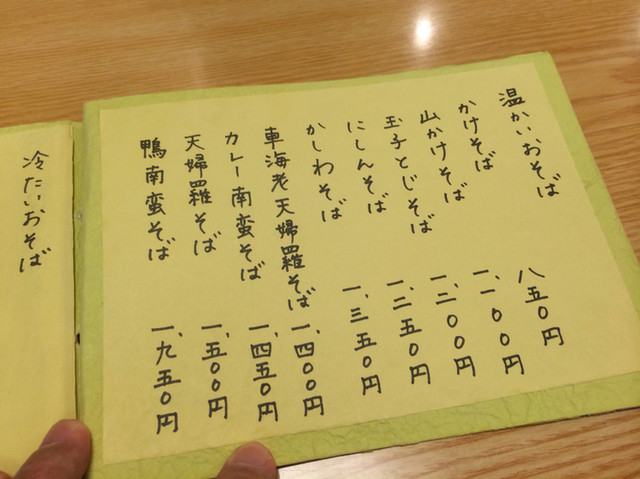 温かいおそば
かけそば 八五〇円
山かけそば 一、一〇〇円
玉子とじそば 一、二〇〇円
にしんそば 一、二五〇円
かしわそば 一、三五〇円
車海老天婦羅そば 一、四〇〇円
カレー南蛮そば 一、四五〇円
天婦羅そば 一、五〇〇円
鴨南蛮そば 一、九五〇円
冷たいおそば